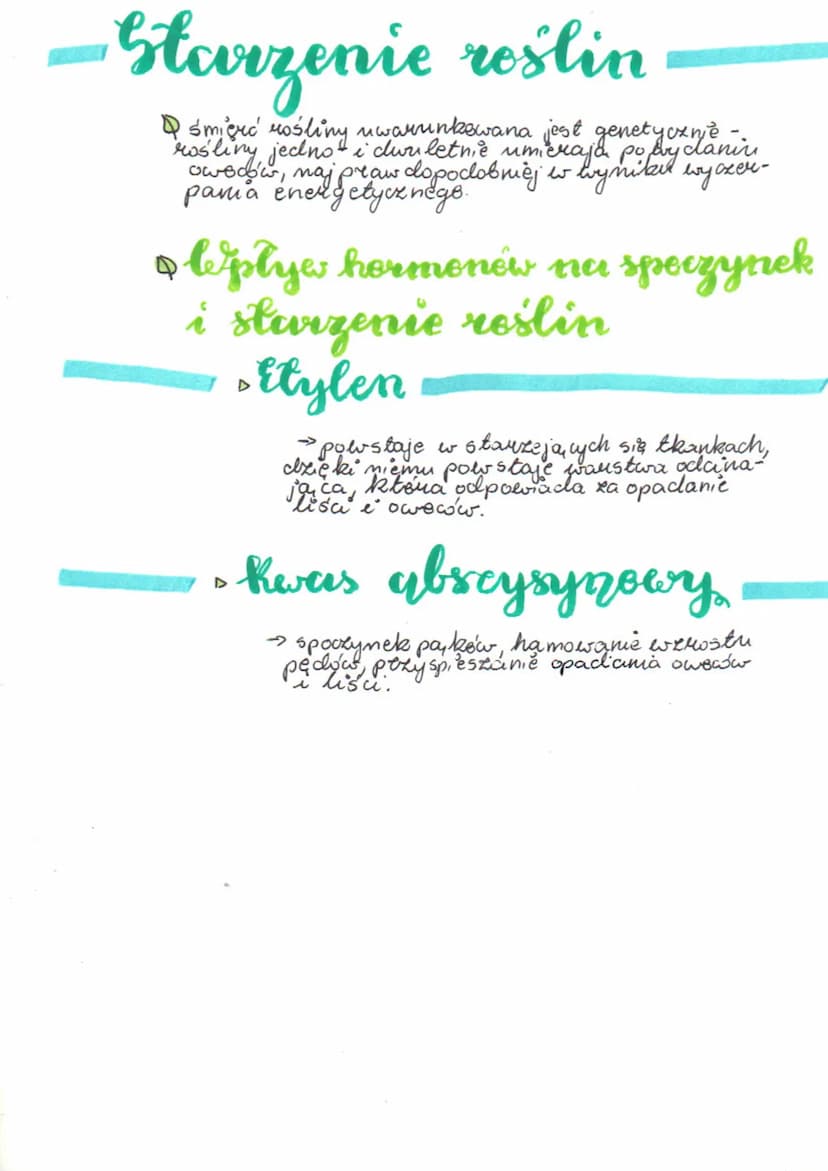 Starzenie roślin
śmierć rośliny uwarunkowana jest genetycznie -
rośliny jedno- i dwuletnie umierają po wydaniu
owoców, najprawdopodobniej w wyniku wyczer-
pania energetycznego.
Wpływ hormonów na spoczynek
i starzenie roślin
Etylen
→ powstaje w starzejących się tkankach,
dzięki niemu powstaje warstwa odcina-
jąca, która odpowiada za opadanie
liści i owoców.
Kwas abscysynowy
→ spoczynek pąków, hamowanie wzrostu
pędów, przyspieszanie opadania owoców
i liści.